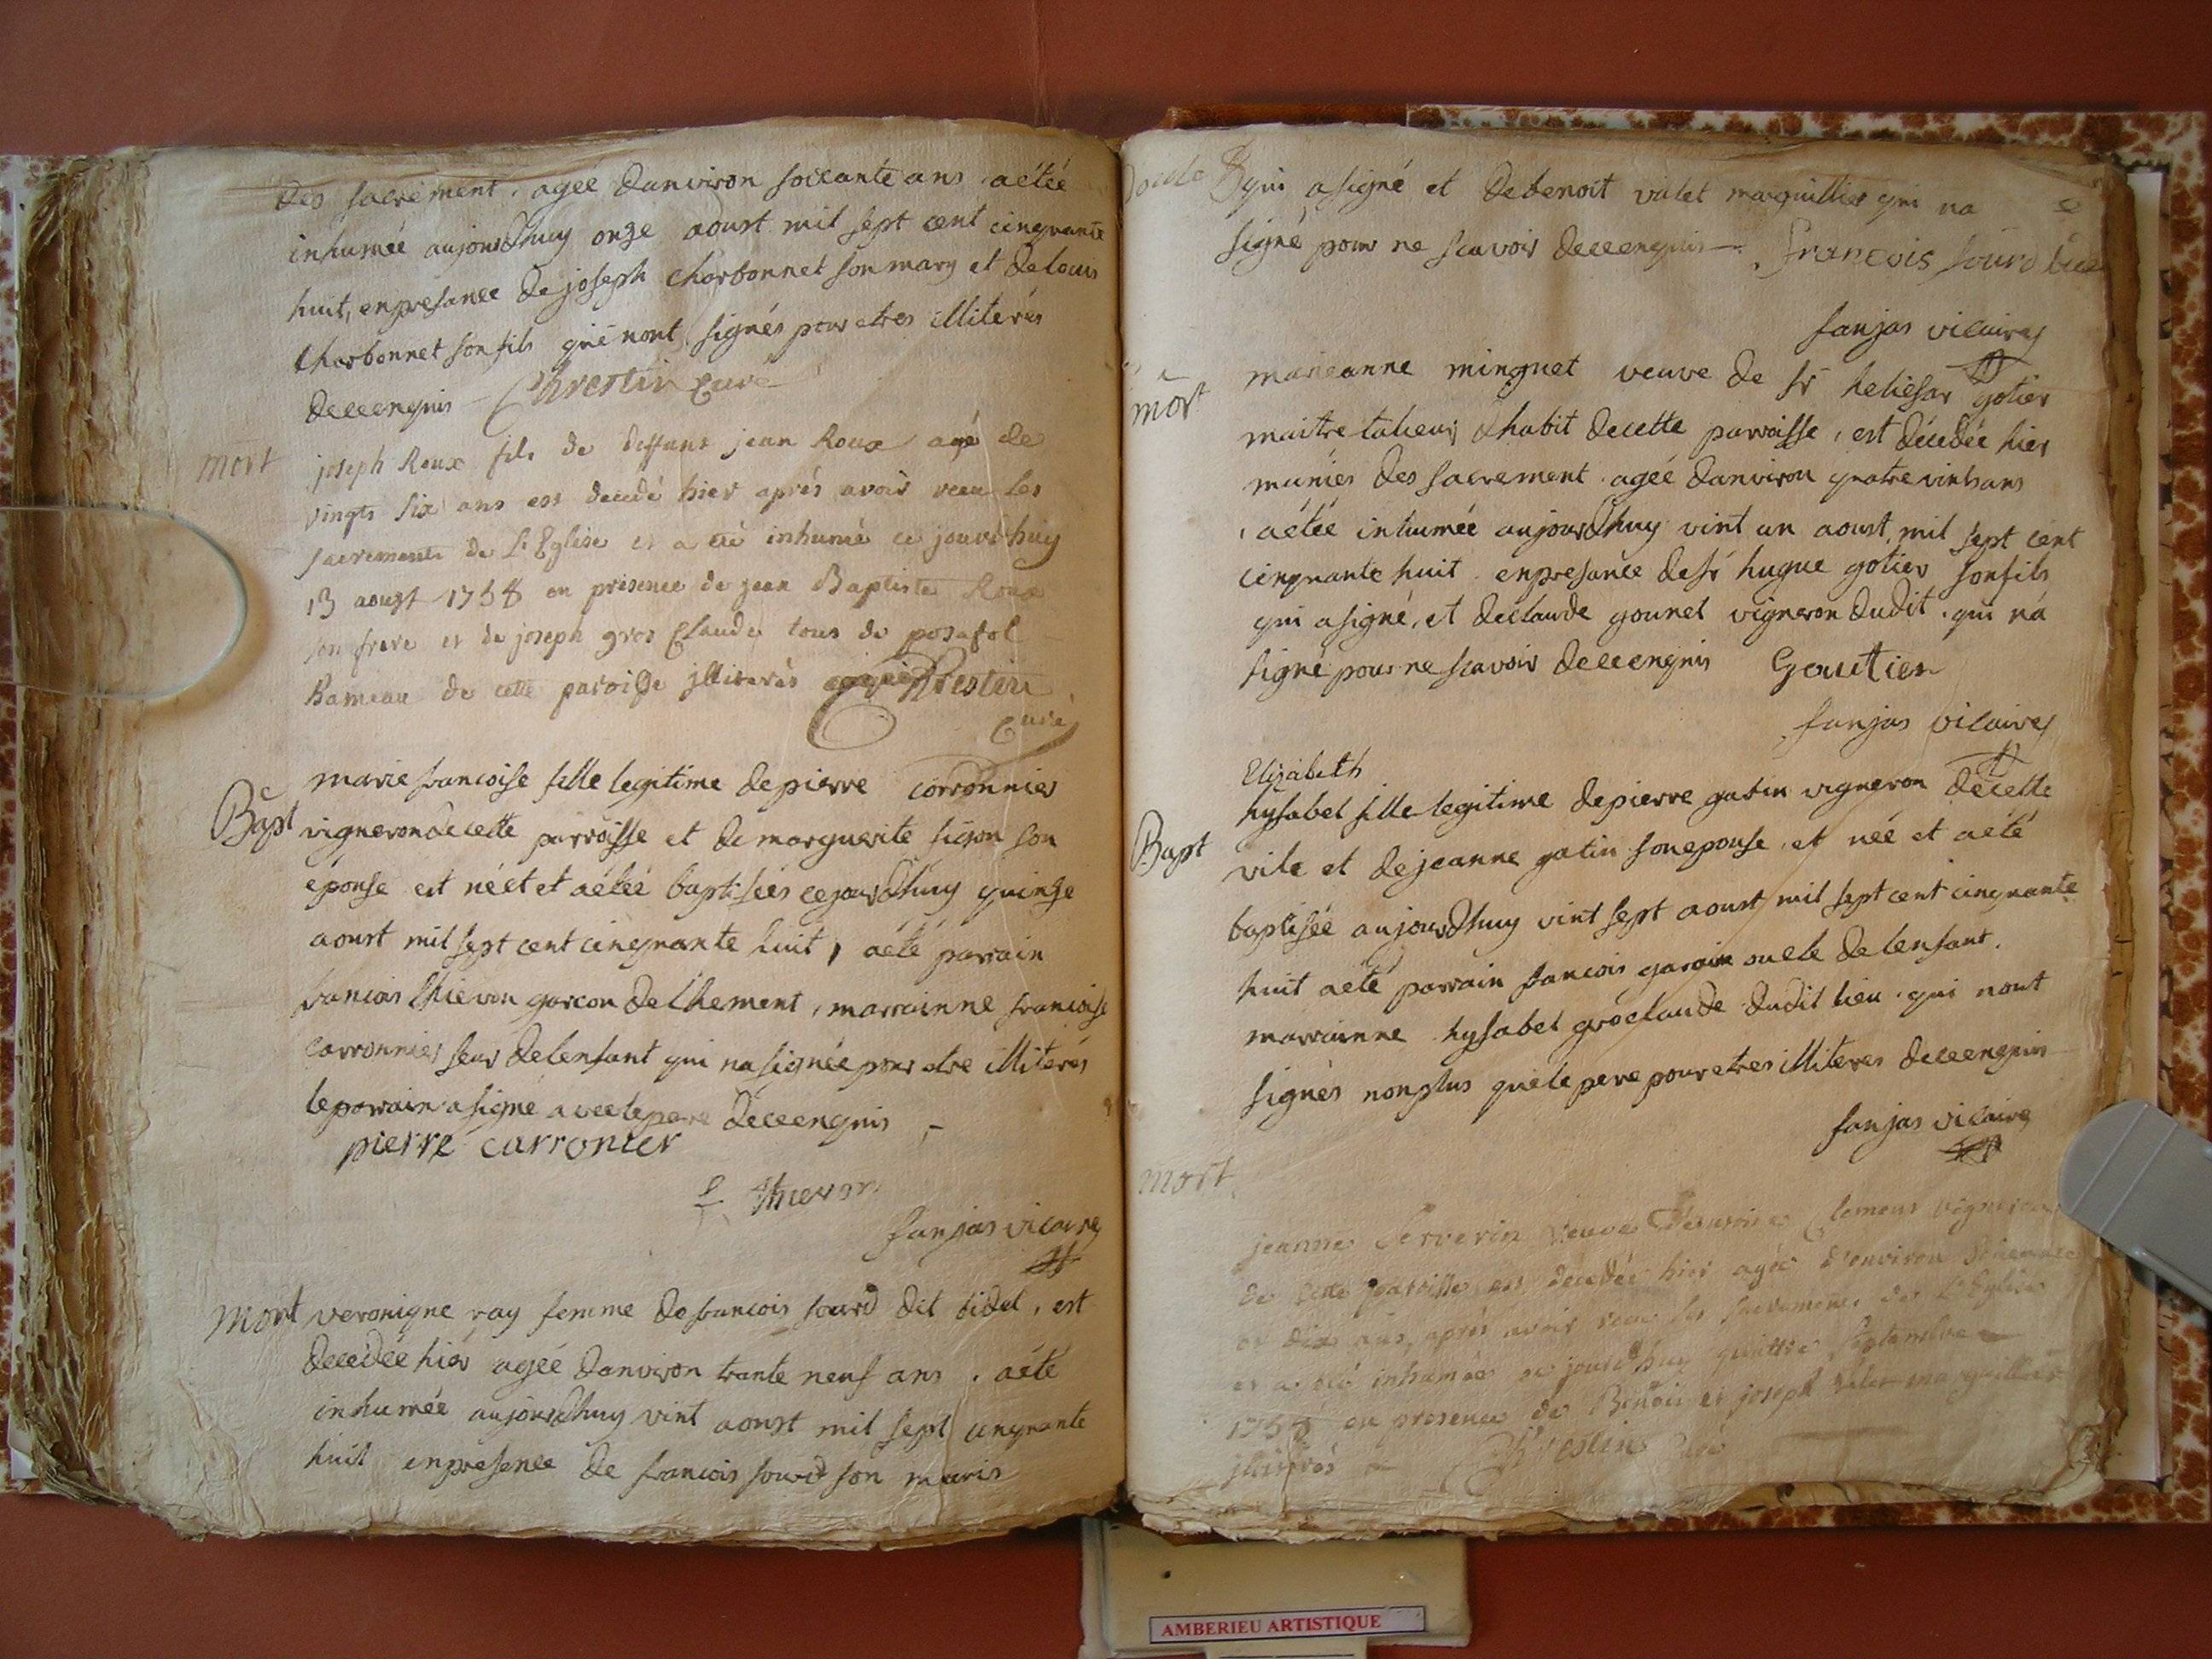 des sacrement. ageé danviron soixante ans aétéé
inhumée aujourdhuy onze aoust mil sept cent cinquante
huit, enpresance de joseph Charbonnet son mary et de louis
Charbonnet son fils qui nont signés pour etres illiterés
deceenquis Chrestin Curé
mort
joseph Roux fils de deffunt jean Roux agé de
vingts six ans est decedé hier aprés avoir receu les
sacrements de L'Eglise et a eté inhumé ce jourd'huy
13 aoust 1758 en présence de jean Baptiste Roux
son frere et de joseph gros Claude tous de posafol
hameau de cette paroisse jlliterés Chrestin
Curé
Bapt
marie francoise fille legitime de pierre corronnier
vigneron decette parroisse et de marguerite sijon son
éponse est néét et aétéé baptisées cejourdhuy quinze
aoust mil sept cent cinquante huit, aété parrain
francois thievon garcon delhement, marrainne francoise
carronnier seur delenfant qui na signée pour etre illiterés
leparrain a signe avec le pere deceenquis -
pierre carronier
f thievon
sanjas vicaire
Mort
veronique ray femme de francois sourd dit bidel, est
décédée hier ageé danviron trante neuf ans. aété
inhumée aujourdhuy vint aoust mil sept cinquante
huit enpresence de francois sourd son maris
qui a signé et de benoit valet marguillier qui na
signé pour ne scavoir deceenquis francois sourd
sanjas vicaire
mort
marieanne minguet veuve de sr heliesar gotier
maitre talieur dhabit decette parroisse, est décédée hier
munies des sacrement ageé danviron quatre vints ans
aétéé inhumée aujourdhuy vint un aoust mil sept cent
cinquante huit enpresance de sr hugue gotier sonfils
qui a signé, et declaude gounet vigneron dudit. qui na
signé pour ne scavoir deceenquis Gautier
sanjas vicaire
Elizabeth
Bapt
hysabel fille legitime de pierre gatin vigneron decette
vile et de jeanne gatin son eponse, et née et aété
baptisée aujourdhuy vint sept aoust mil sept cent cinquante
huit aété parrain francois garain oncle delenfant.
marrainne hysabel groclaude dudit lieu qui nont
signés nonplus que le pere pour etres illiteres deceenquis
sanjas vicaire
mort
jeanne veuve Clemens vigneron
de cette paroisse est decedée hier agée d'environ soixante
et dix ans, aprés avoir receu les sacrements de L'Eglise
et a eté inhumée ce jourd'huy quattre Septembre
1758 en presence de Benoit et joseph valet marguilliers
jlliterés Chrestin Curé
AMBERIEU ARTISTIQUE